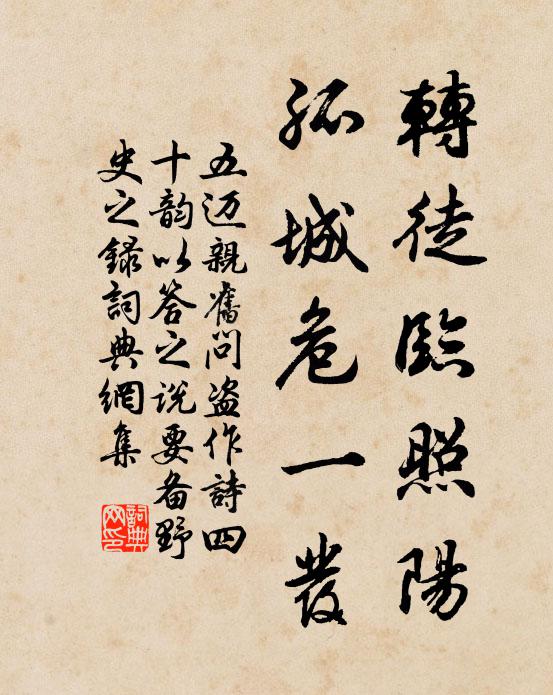 轉徒臨照陽
孤城危一發
五迈親舊问盗作詩四
十韵以答之说要备野
史之録詞典網集
詞典网印